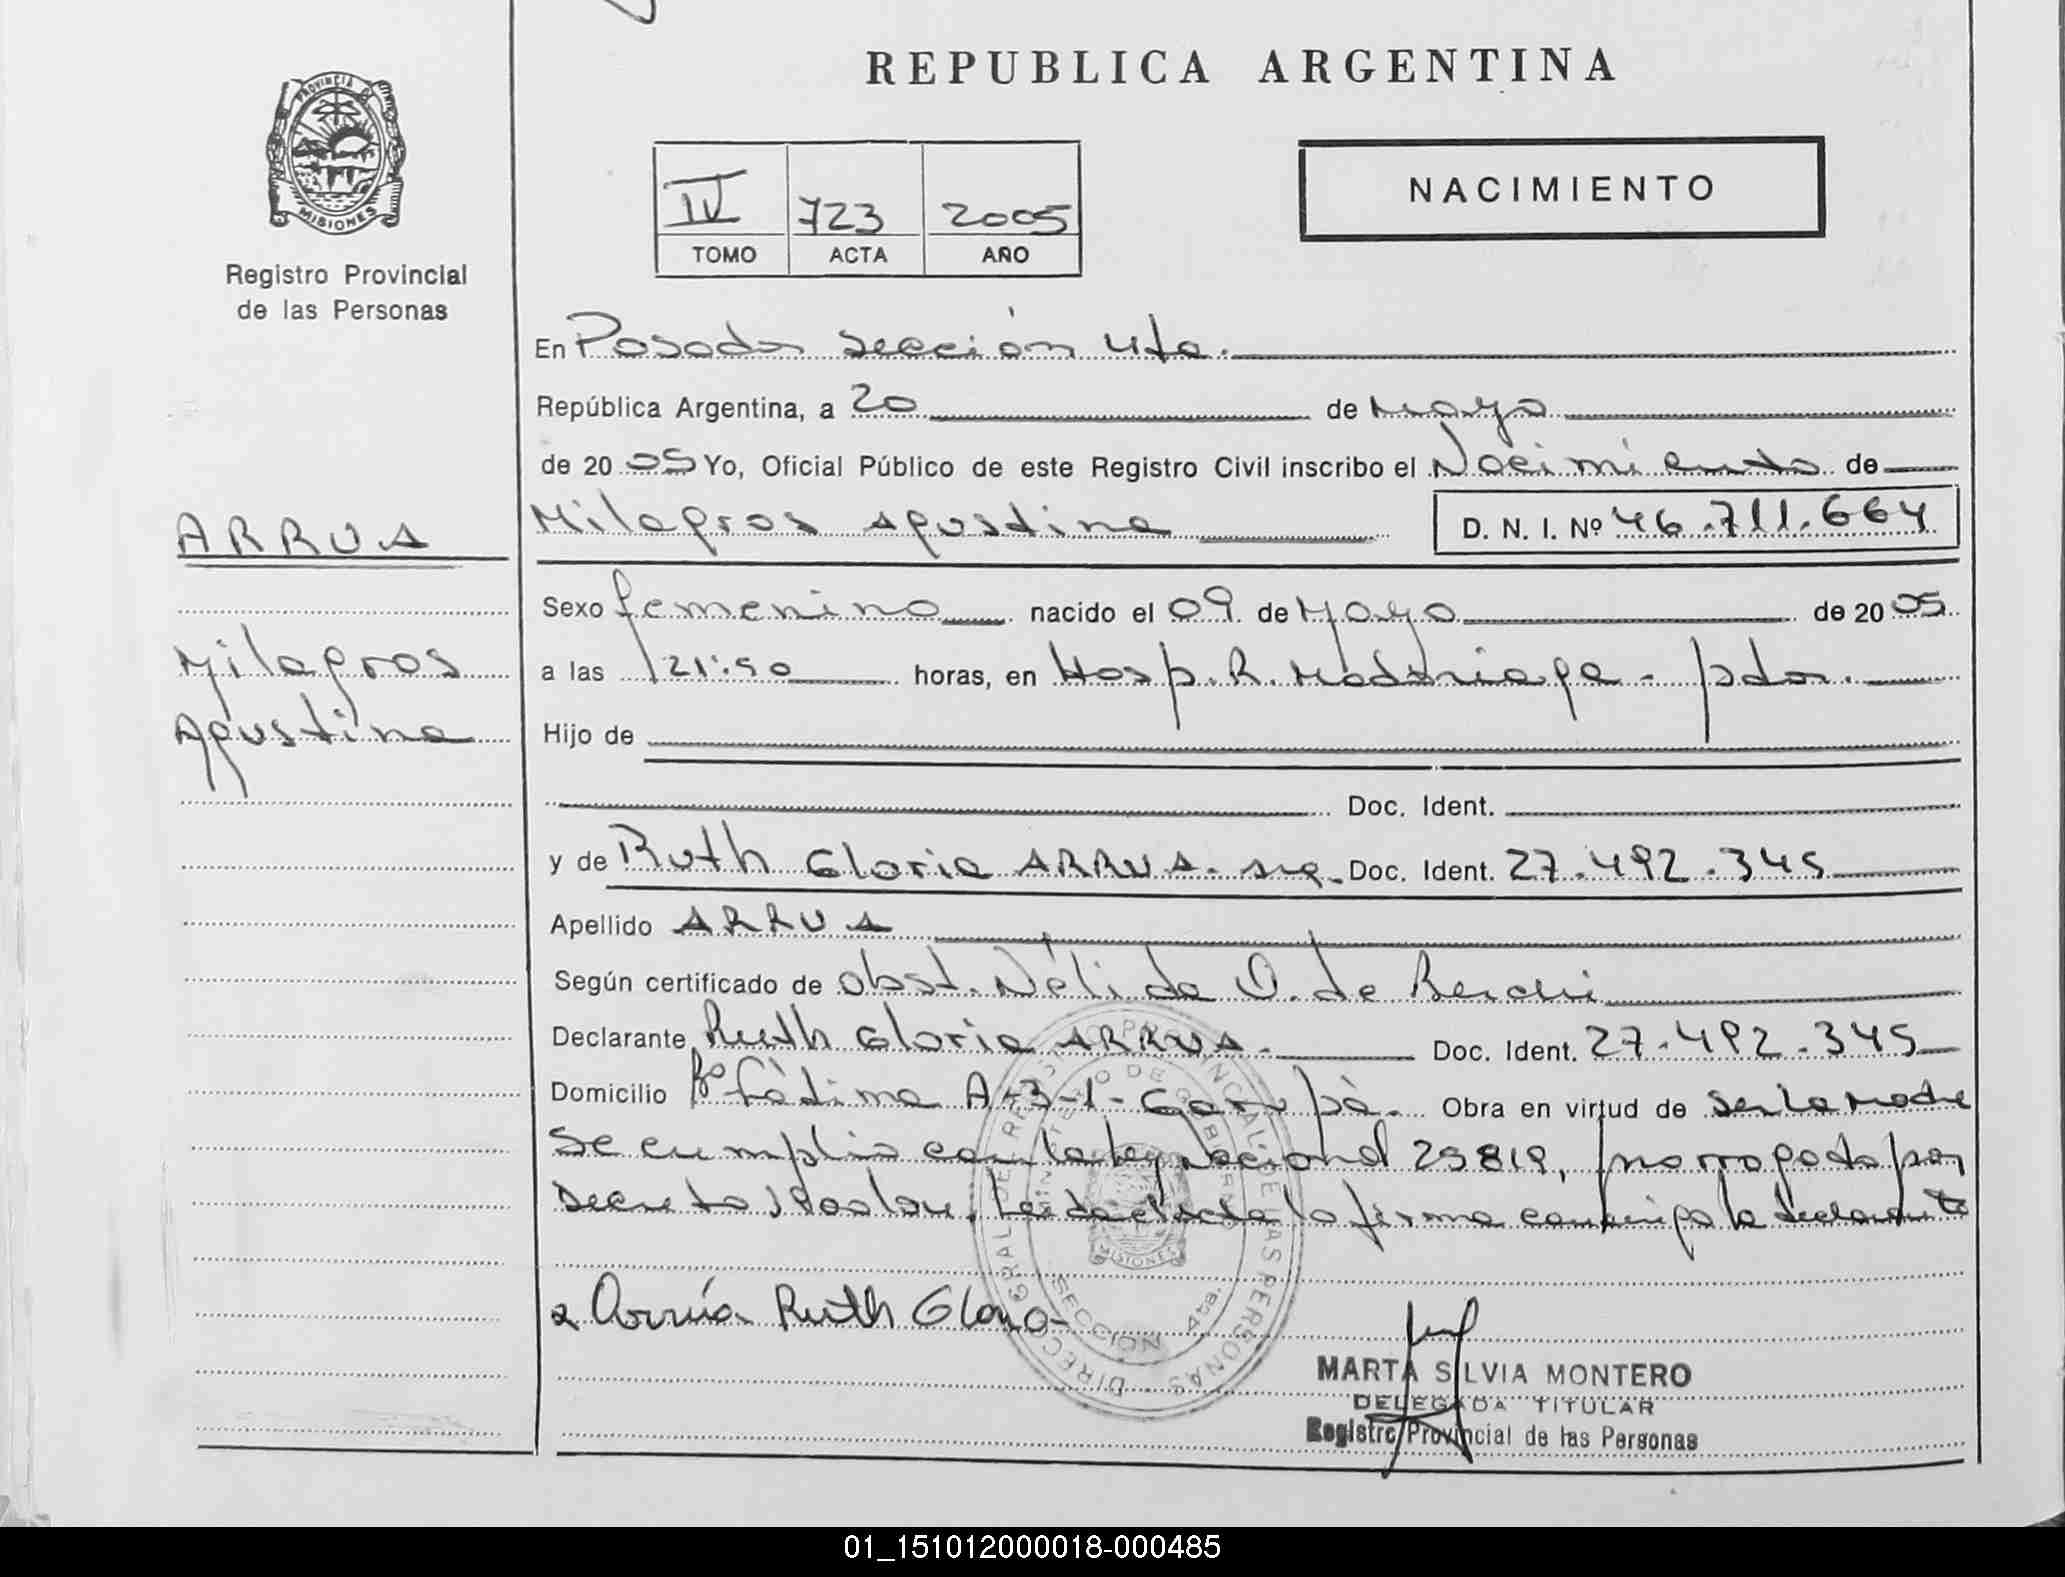 REPUBLICA ARGENTINA
PROVINCIA DE
MISIONES
Registro Provincial
de las Personas
IV 723 2005
TOMO ACTA AÑO
NACIMIENTO
En Posadas sección 4ta.
República Argentina, a 20 de Mayo
de 2005 Yo, Oficial Público de este Registro Civil inscribo el Nacimiento de
ARRUA
Milagros Agustina D. N. I. Nº 46.711.664
Sexo femenino nacido el 09 de Mayo de 2005
Milagros
a las 21:50 horas, en Hosp. R. Madariaga - pdas.
Agustina
Hijo de
Doc. Ident.
y de Ruth Gloria ARRUA. arg. Doc. Ident. 27.492.345
Apellido ARRUA
Según certificado de obst. Nélida O. de
Declarante Ruth Gloria ARRUA. Doc. Ident. 27.492.345
Domicilio Bº Fátima A-3-1- Garupá. Obra en virtud de ser la madre
Se cumplio con la ley Nacional 25819, prorrogada por
Decreto Leida el acta la firma conmigo la declarante
Arrúa Ruth Gloria
DIRECCION GRAL. DEL REGISTRO PROVINCIAL DE LAS PERSONAS
MINISTERIO DE GOBIERNO
MISIONES
SECCION 4ta.
MARTA SILVIA MONTERO
DELEGADA TITULAR
Registro Provincial de las Personas
01_151012000018-000485